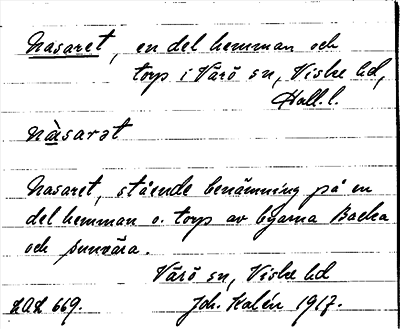 Nasaret, en del hemman och
torp i Värö sn, Viske hd,
Hall. l.
nàsarət
Nasaret, stående benämning på en
del hemman o. torp av byarna Backa
och Sunvära.
Värö sn, Viske hd
ZAL 669. Joh. Kalén 1917.